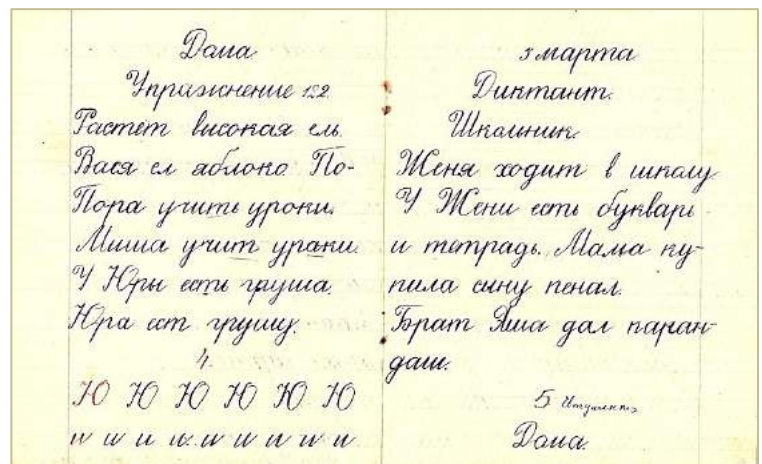 Дома.
Упражнение 122.
Растёт высокая ель.
Вася ел яблоко. По-
Пора учить уроки.
Миша учит уроки.
У Юры есть груша.
Юра ест грушу.
4.
Ю Ю Ю Ю Ю Ю
и и и и и и и и и
3 марта
Диктант.
Школьник.
Женя ходит в школу.
У Жени есть букварь
и тетрадь. Мама ку-
пила сыну пенал.
Брат Яша дал каран-
даш.
5
Дома.